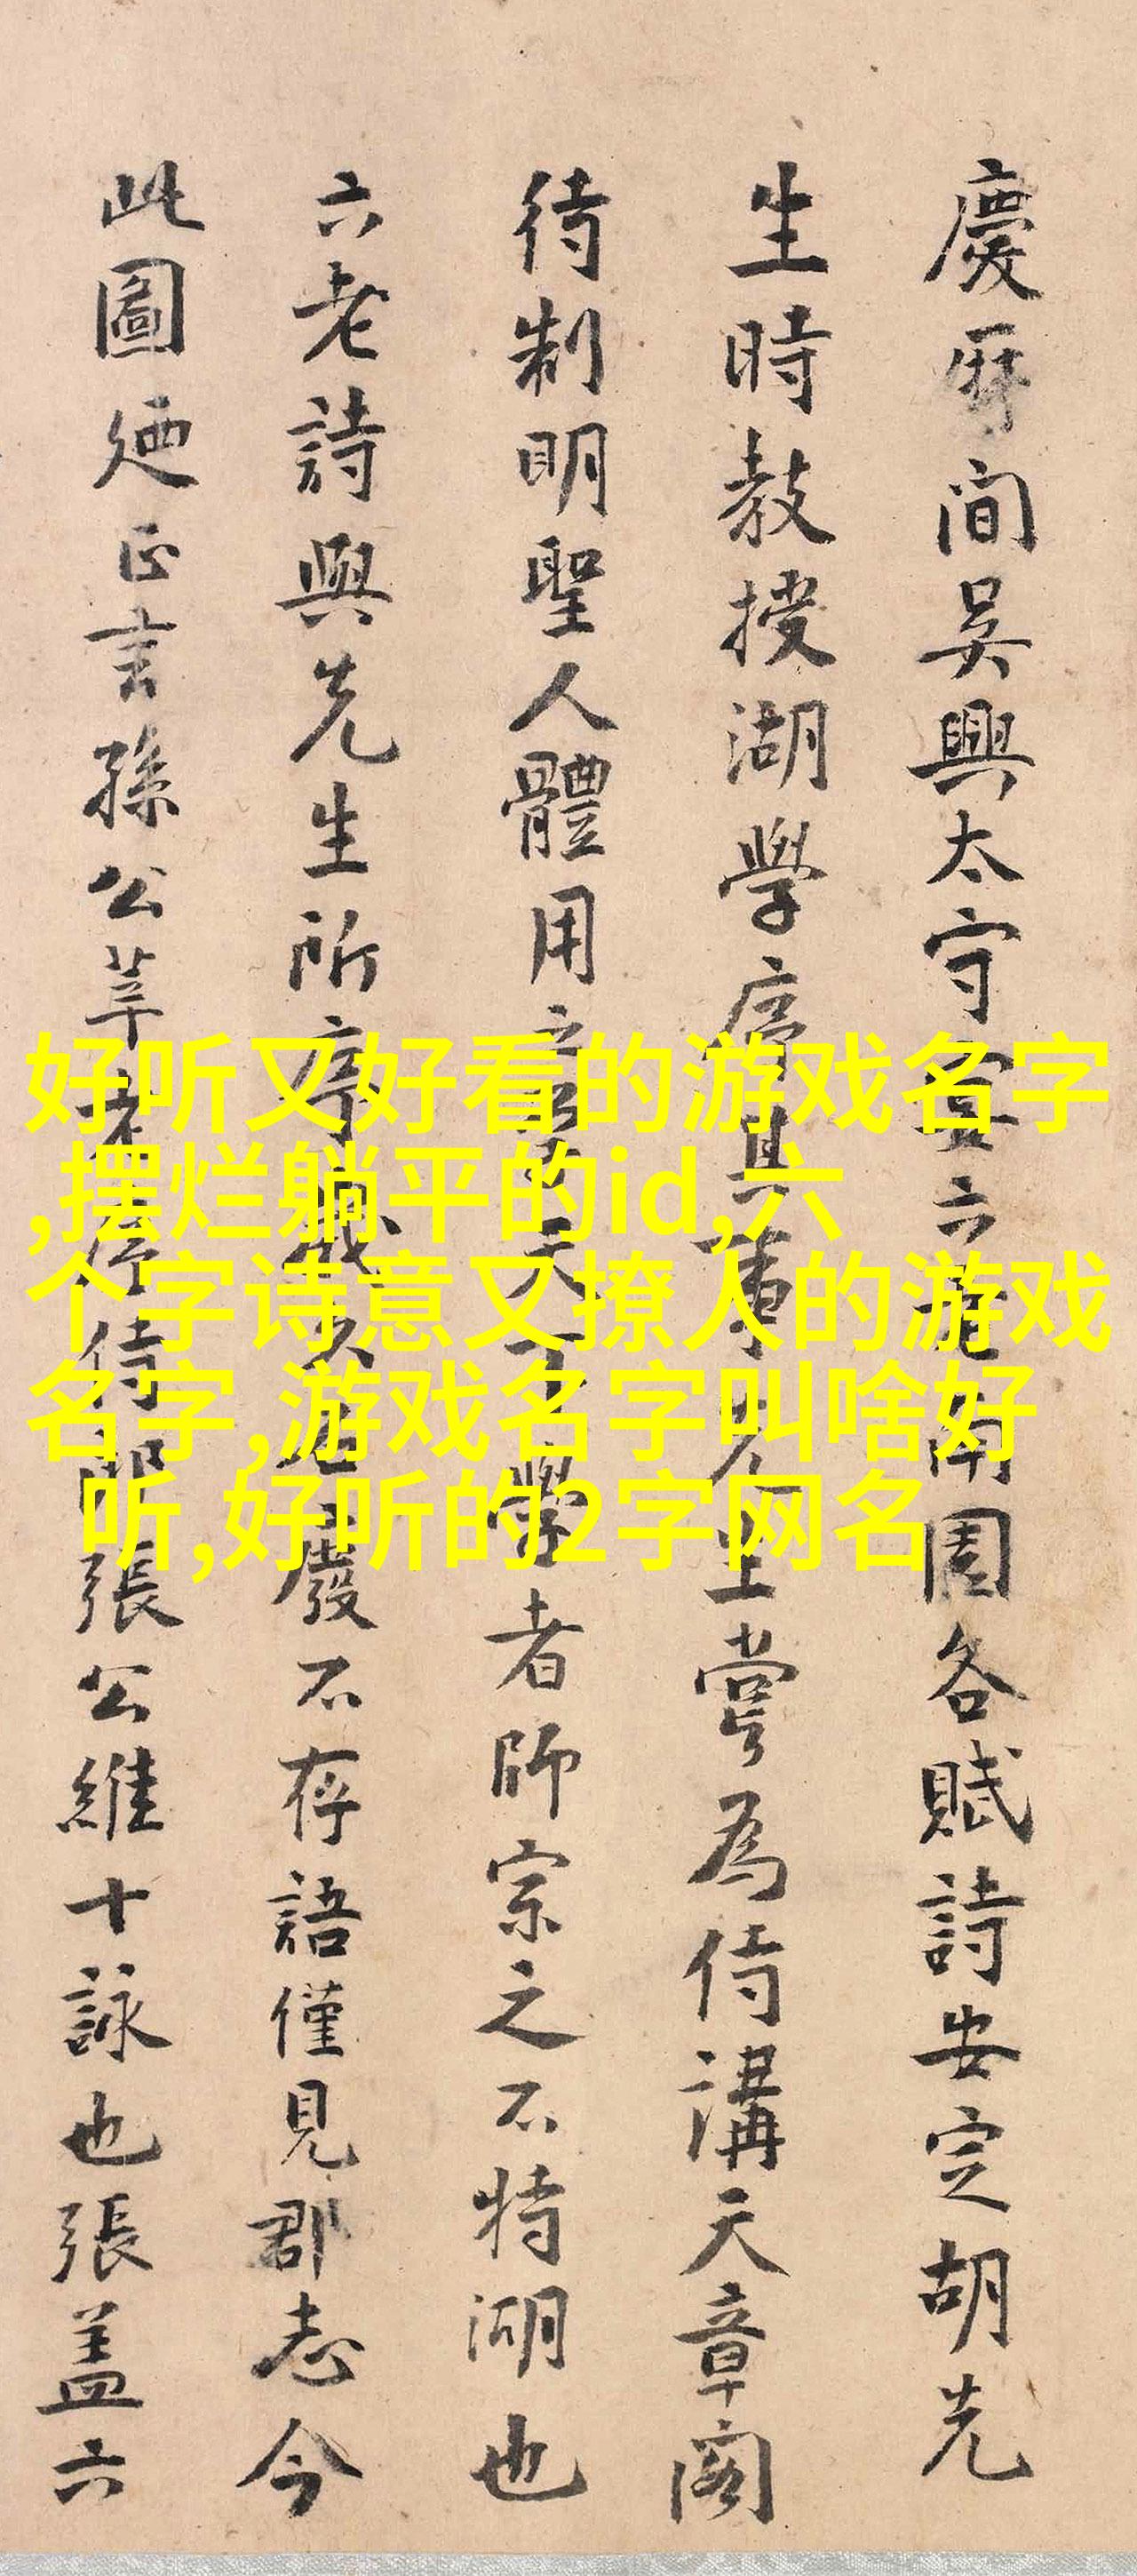 慶曆間吳興太守宴六老南園各賦詩安定胡先
生時教授湖學序其事先生嘗為侍講天章閣
待制明聖人體用之學天下學者師宗之不特湖也
六老詩與先生所序歲久石廢不存語僅見郡志今
此圖廼正言孫公莘老序侍郎張公維十詠也張蓋六
好听又好看的游戏名字
,摆烂躺平的id,六
个字诗意又撩人的游戏
名字,游戏名字叫啥好
听,好听的2字网名